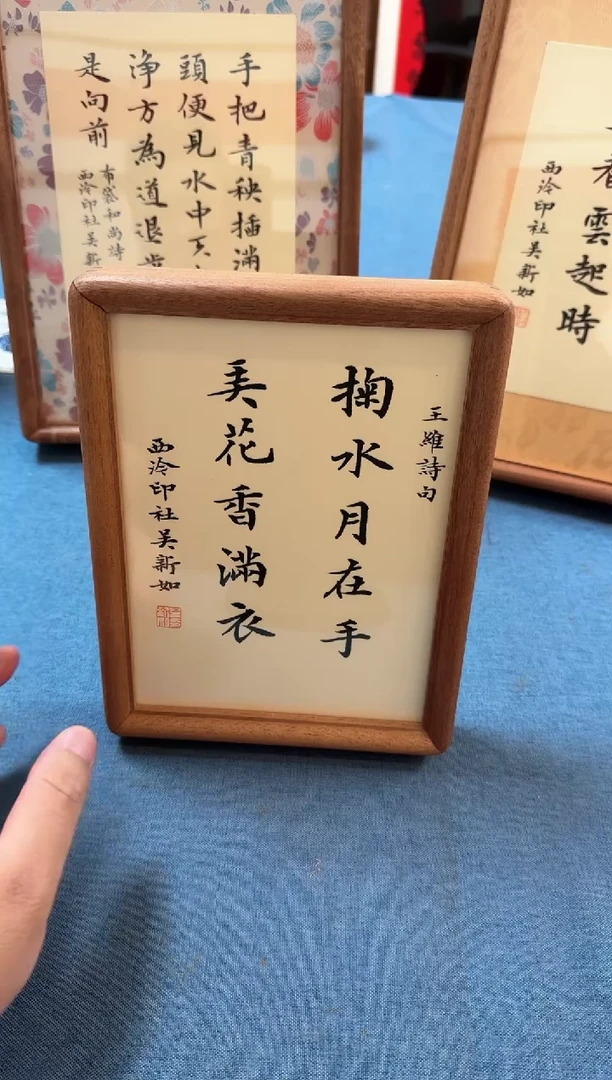 手把青秧插滿
頭便見水中天
浄方為道退步
是向前
布袋和尚詩
西泠印社吳新
看雲起時
西泠印社吳新如
王維詩句
掬水月在手
弄花香滿衣
西泠印社吳新如